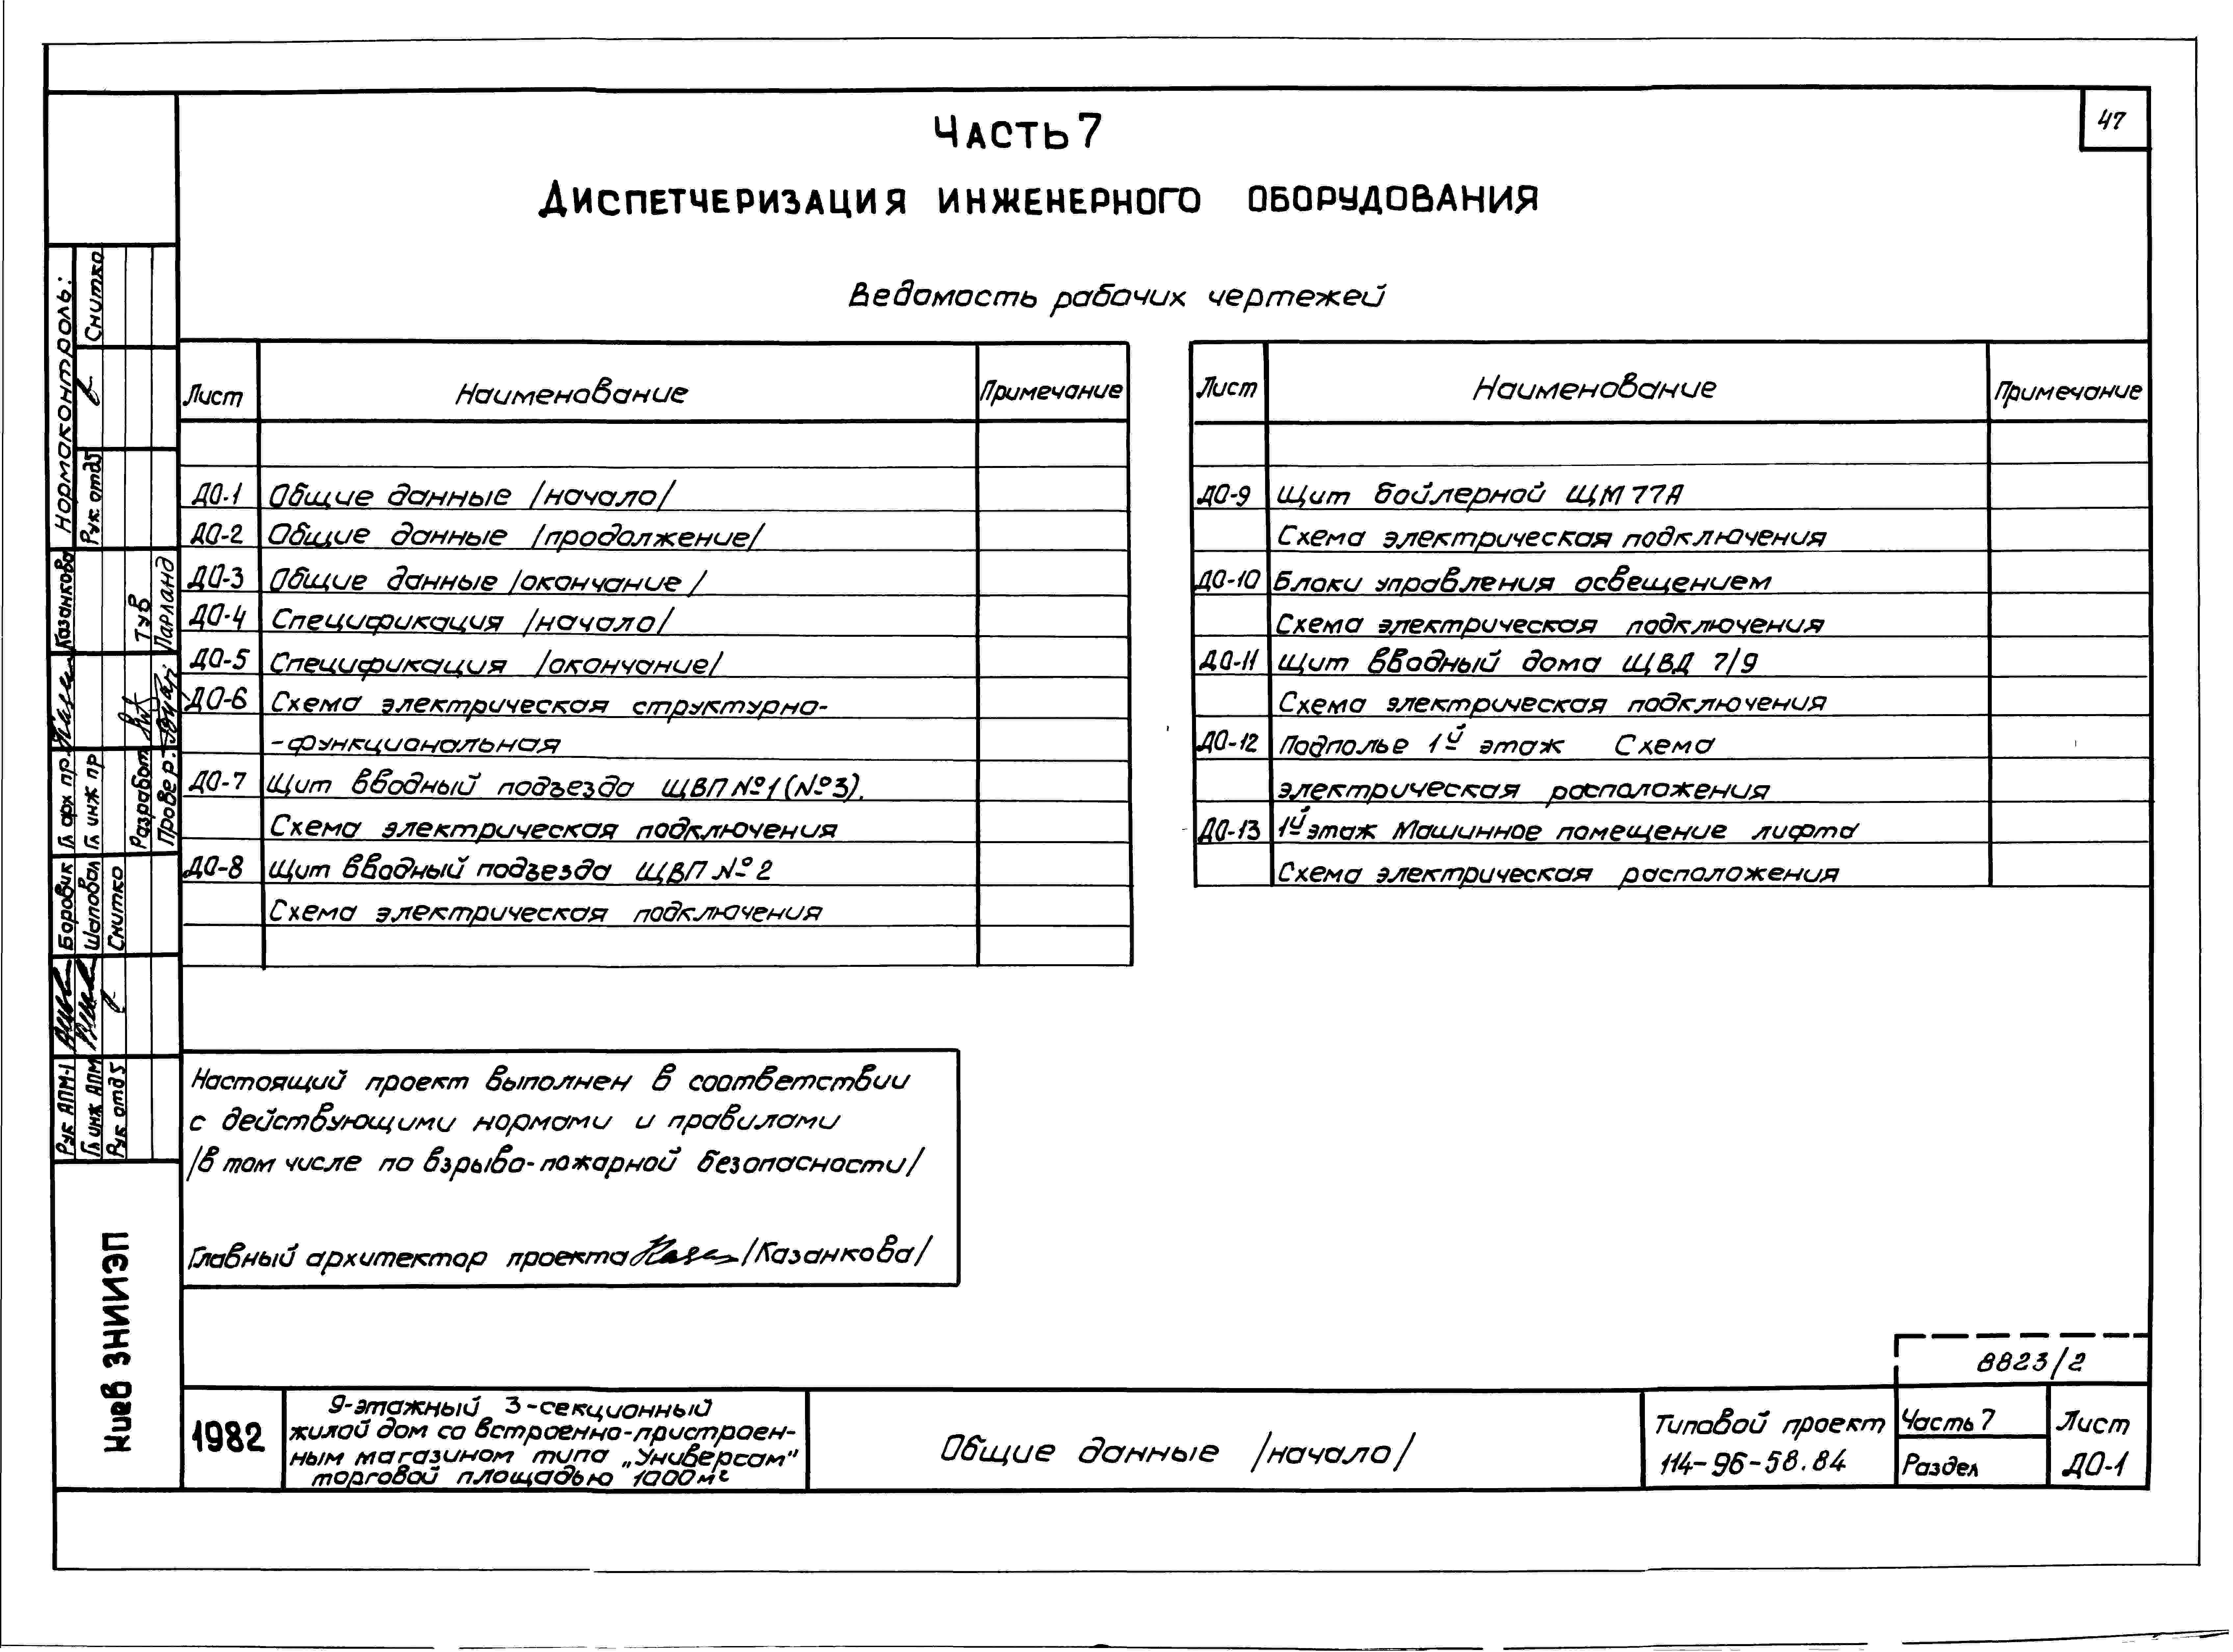 47
Часть 7
Диспетчеризация инженерного оборудования
Ведомость рабочих чертежей
Лист Наименование Примечание
ДО-1 Общие данные /начало/
ДО-2 Общие данные /продолжение/
ДО-3 Общие данные /окончание/
ДО-4 Спецификация /начало/
ДО-5 Спецификация /окончание/
ДО-6 Схема электрическая структурно-
-функциональная
ДО-7 Щит вводный подъезда ЩВП №1 (№3).
Схема электрическая подключения
ДО-8 Щит вводный подъезда ЩВП №2
Схема электрическая подключения
Лист Наименование Примечание
ДО-9 Щит бойлерной ЩМ 77А
Схема электрическая подключения
ДО-10 Блоки управления освещением
Схема электрическая подключения
ДО-11 Щит вводный дома ЩВД 7/9
Схема электрическая подключения
ДО-12 Подполье 1й этаж Схема
электрическая расположения
ДО-13 1й этаж Машинное помещение лифта
Схема электрическая расположения
Настоящий проект выполнен в соответствии
с действующими нормами и правилами
/в том числе по взрыво-пожарной безопасности/
Главный архитектор проекта /Казанкова/
Нормоконтроль:
Рук. отд5 Снитко
Гл арх пр. Казанкова
Гл инж пр
Разработ. Тув
Провер. Парланд
Рук АПМ-1 Боровик
Гл инж АПМ Шаповал
Рук отд5 Снитко
Киев ЗНИИЭП
1982
9-этажный 3-секционный
жилой дом со встроенно-пристроен-
ным магазином типа „Универсам"
торговой площадью 1000м²
Общие данные /начало/
8823/2
Типовой проект
114-96-58.84
Часть 7
Раздел
Лист
ДО-1